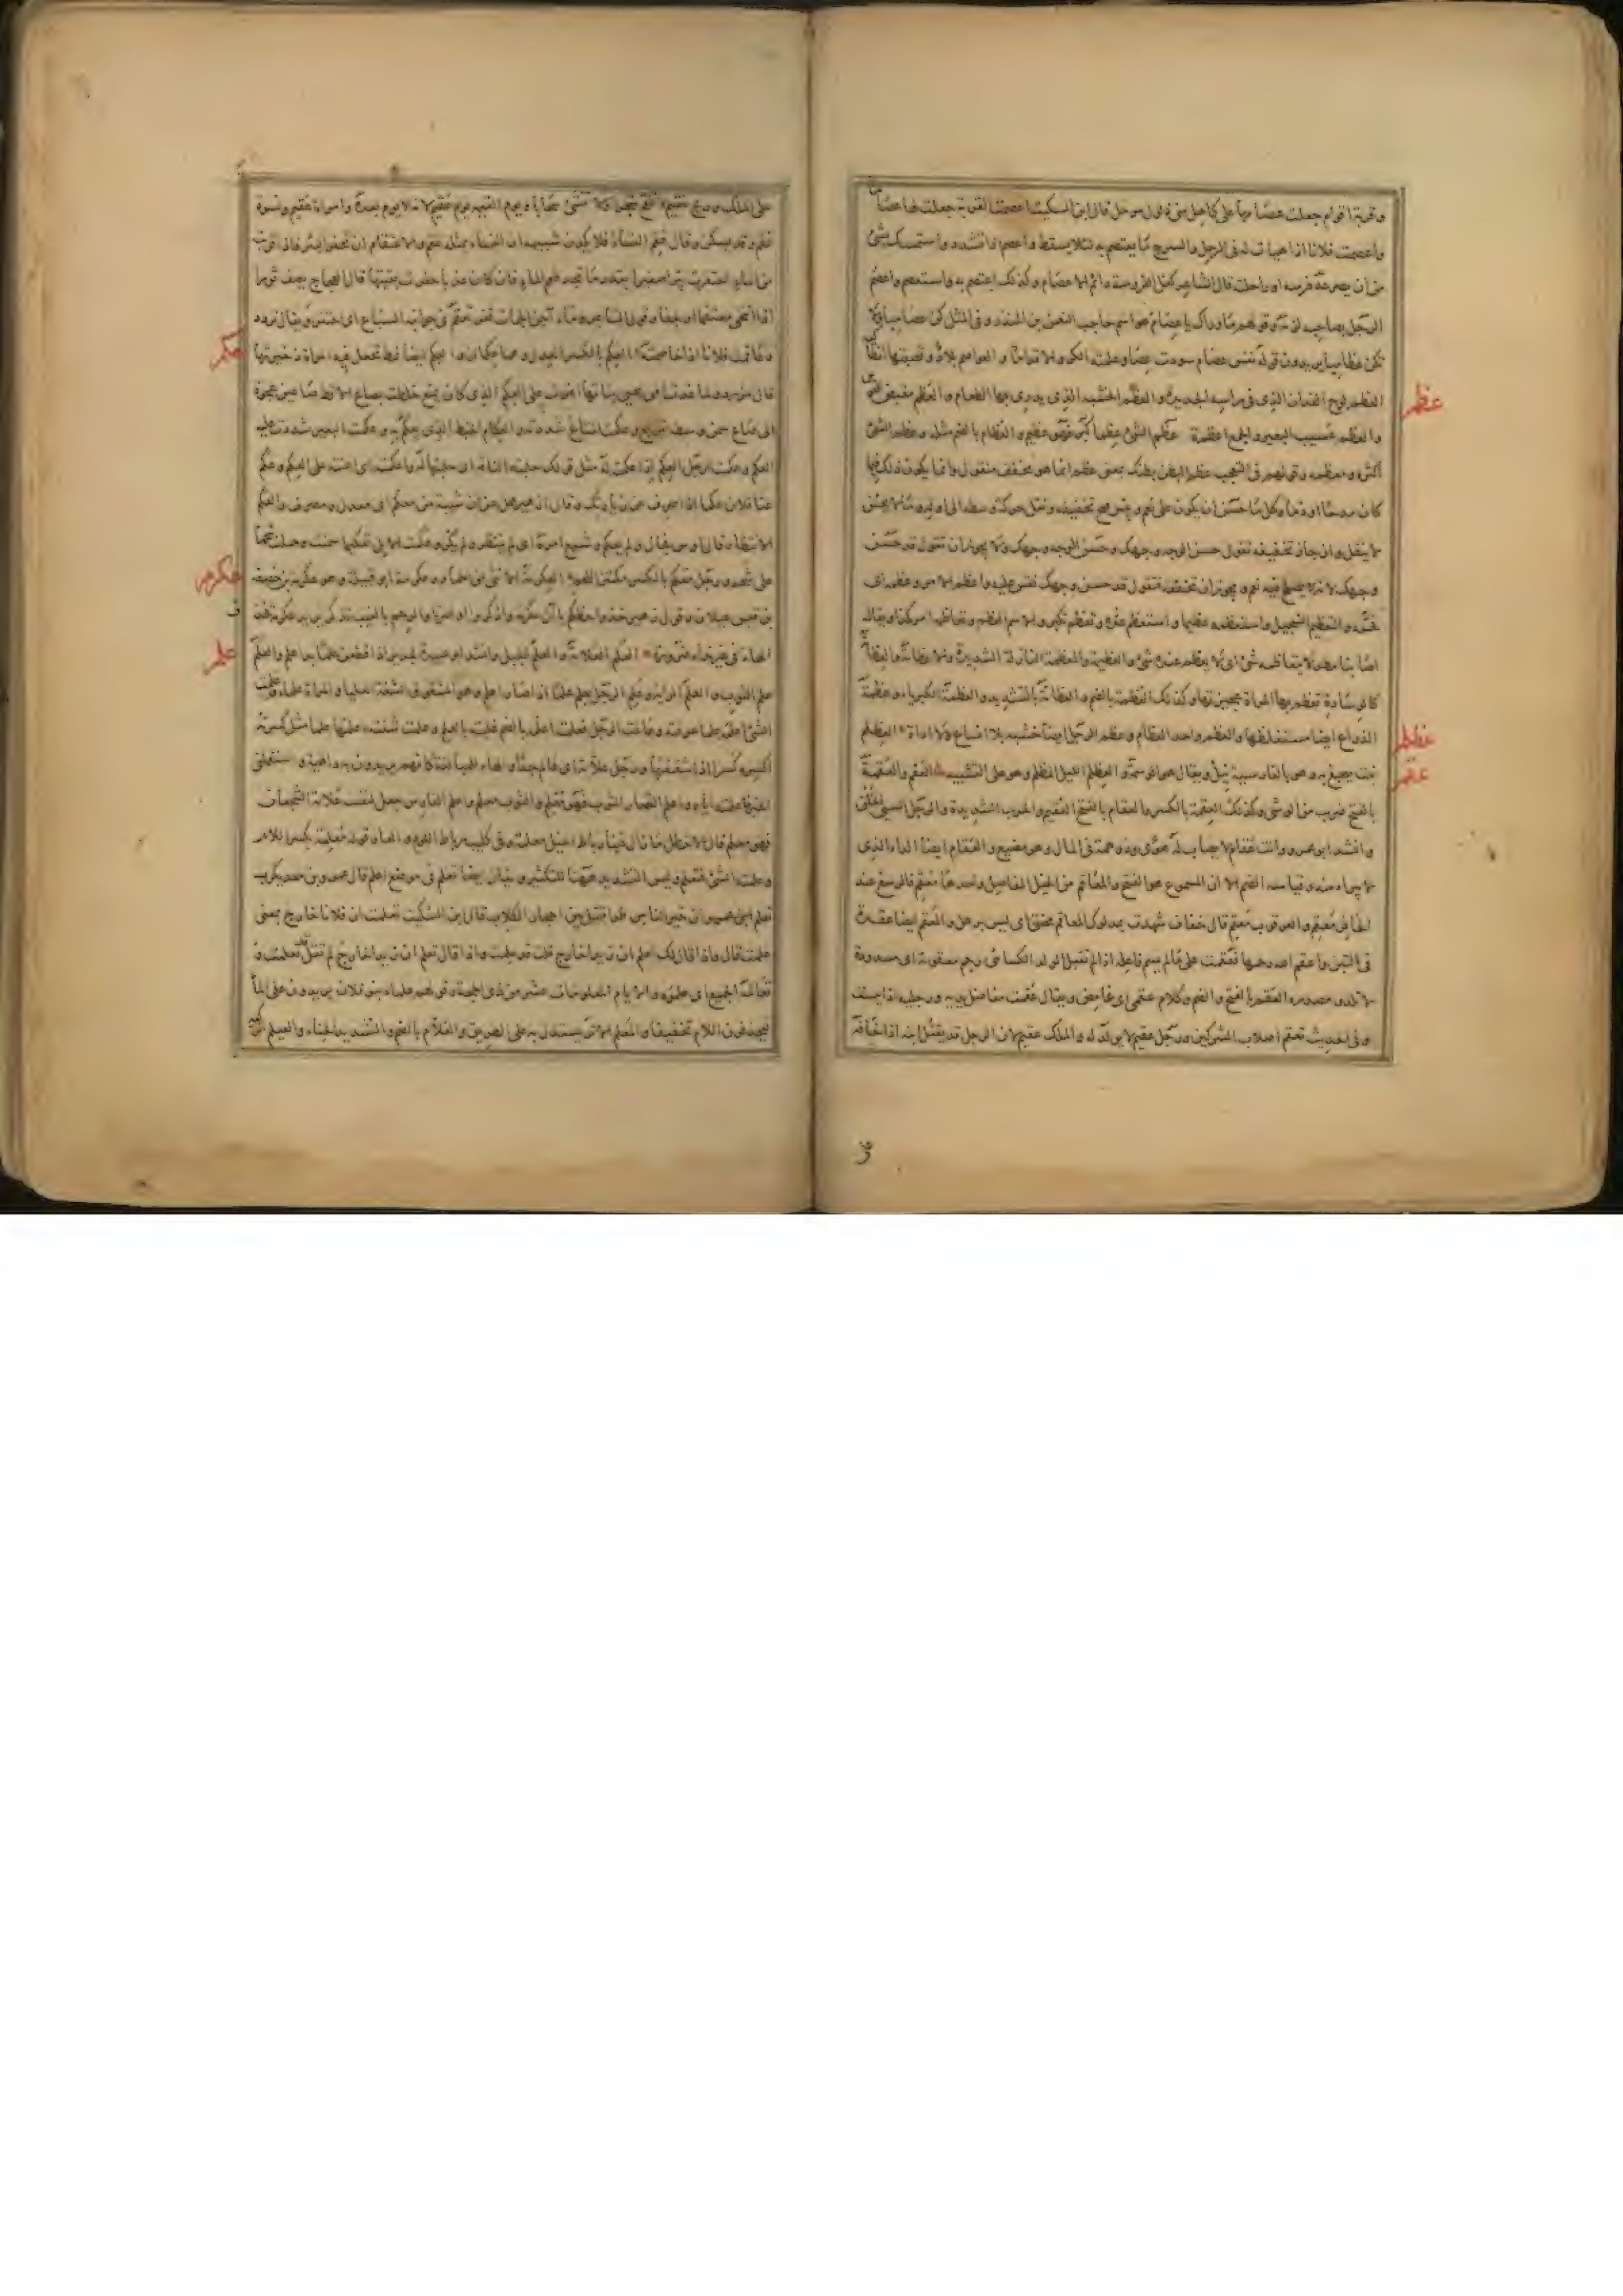 وقربة اقوام جعلت عصامها على كاهل منى ذلول مرحل قال ابن السكيت اعصمت القربة جعلت لها عصاما
واعصمت فلانا اذا هيأت له فى الرحل والسرج ما يعتصم به لئلا يسقط واعصم اذا تشدد واستمسك بشئ
من ان يصرعه فرسه او راحلته قال الشاعر كفل الفروسة دائم الاعصام وكذلك اعتصم به واستعصم واعصم
الرجل بصاحبه لزمه وقولهم ما وراك يا عصام هو اسم حاجب النعمن بن المنذر وفى المثل كن عصاميا ولا
تكن عظاميا يريدون قوله نفس عصام سودت عصاما وعلمته الكر والاقداما والعواصم بلاد وقصبتها انطاكية
العضم لوح الفدان الذى فى راسه الحديدة والعضم الخشبة الذى يذرى بها الطعام والعضم مقبض القوس
والعضم عسيب البعير والجمع اعضمة عظم الشئ عظما كبر فهو عظيم والعظام بالضم مثله وعظم الشئ
اكثره ومعظمه وقولهم فى التعجب عظم البطن بطنك بمعنى عظم انما هو مخفف منقول وانما يكون ذلك فيما
كان مدحا او ذما وكل ما حسن ان يكون على نعم وبئس صح تخفيفه ونقل حركة وسطه الى اوله وما لا يحسن
لا ينقل وان جاز تخفيفه تقول حسن الوجه وجهك وحسن الوجه وجهك ولا يجوز ان تقول قد حسن
وجهك لانه لا يصلح فيه نعم ويجوز ان تخففه فتقول قد حسن وجهك فقس عليه واعظم الامر وعظمه اى
فخمه والتعظيم التبجيل واستعظمه عده عظيما واستعظم وتعظم تكبر والاسم العظم وتعاظمه امر كذا ويقال
اصابنا مطر لا يتعاظمه شئ اى لا يعظم عنده شئ والعظيمة والمعظمة النازلة الشديدة والاعظامة والعظامة
كالوسادة تعظم بها المراة عجيزتها وكذلك العظمة بالضم والعظامة بالتشديد والعظمة الكبرياء وعظمة
الذراع ايضا مستغلظها والعظم واحد العظام وعظم الرحل ايضا خشبه بلا انساع ولا اداة العظلم
نبت يصبغ به وهو بالفارسية نيل ويقال هو الوسمة والعظلم الليل المظلم وهو على التشبيه العقم والعقمة
بالفتح ضرب من الوشى وكذلك العقمة بالكسر والعقام بالفتح العقيم والحرب الشديدة والرجل السيئ الخلق
وانشد ابو عمرو وانت عقام لا يصاب له هوى وذو همة فى المال وهو مضيع والعقام ايضا الداء الذى
لا يبرأ منه وقياسه الضم الا ان المسموع هو الفتح والمعاقم من الخيل المفاصل واحدها معقم فالرسغ عند
الحافر معقم والعرقوب معقم قال خفاف شهدت بمدلوك المعاقم محنق اى ليس برهل والمعقم ايضا عقدة
فى التبن واعقم الله رحمها فعقمت على ما لم يسم فاعله اذا لم تقبل الولد الكسائى رحم معقومة اى مسدودة
لا تلد ومصدره العقم بالفتح والضم وكلام عقمى اى غامض ويقال عقمت مفاصل يديه ورجليه اذا يبست
وفى الحديث تعقم اصلاب المشركين ورجل عقيم لا يولد له والملك عقيم لان الرجل قد يقتل ابنه اذا خافه
عظم
عظلم
عقم
على الملك وريح عقيم لا تلقح سحابا ويوم القيمة يوم عقيم لانه لا يوم بعده وامراة عقيم ونسوة
عقم وقد يسكن وقال عقم النساء فلا يلدن شبيهه ان النساء بمثله عقم والاعتقام ان تحفر البئر فاذا قربت
من الماء احتفرت بئرا صغيرا بقدر ما تجد طعم الماء فان كان عذبا حفرت بقيتها قال العجاج يصف ثورا
وعاقمت فلانا اذا خاصمته العكم بالكسر العدل وهما عكمان والعكم ايضا نمط تجعل فيه المراة ذخيرتها
الى صاع سمن وسطه يتريع وعكمت المتاع شددته والعكام الخيط الذى يعكم به وعكمت البعير شددت عليه
العكم وعكمت الرجل العكم اذا عكمته له مثل قولك حلبته الناقة اى حلبتها له واعكمته اى اعنته على العكم وعكم
الانتظار قال اوس فجال ولم يعكم وشيع امره اى لم ينتظر ولم يكر وعكمت الابل تعكيما سمنت وحملت شحما
على شحم ورجل معكم بالكسر مكتنز اللحم العكرمة الانثى من الحمام وعكرمة ابو قبيلة وهو عكرمة بن خصفة
بن قيس عيلان وقول زهير خذوا حظكم يا آل عكرم واذكروا اواصرنا والرحم بالغيب تذكر يريد عكرمة فحذف
الهاء فى غير نداء ضرورة العلم العلامة والعلم الجبل وانشد ابو عبيدة لجرير اذا قطعن علما بدا علم والعلم
علم الثوب والعلم الراية وعلم الرجل يعلم علما اذا صار اعلم وهو المشقوق الشفة العليا والمراة علماء وعلمت
الشئ اعلمه علما عرفته وعالمت الرجل فعلمته اعلمه بالضم غلبته بالعلم وعلمت شفته اعلمها علما مثل كسرته
اكسره كسرا اذا شققتها ورجل علامة اى عالم جدا والهاء للمبالغة كانهم يريدون به داهية واستعلمنى
الخبر فاعلمته اياه واعلم القصار الثوب فهو معلم والثوب معلم واعلم الفارس جعل لنفسه علامة الشجعان
فهو معلم قال الاخطل ما زال فينا رباط الخيل معلمة وفى كليب رباط اللوم والعار وقوله معلمة بكسر اللام
وعلمته الشئ فتعلم وليس التشديد ههنا للتكثير ويقال ايضا تعلم فى موضع اعلم قال عمرو بن معديكرب
تعلم ان خير الناس طرا قتيل بين احجار الكلاب قال ابن السكيت تعلمت ان فلانا خارج بمعنى
علمت قال واذا قال لك اعلم ان زيدا خارج قلت قد علمت واذا قال تعلم ان زيدا خارج لم تقل تعلمت و
تعالمه الجميع اى علموه والايام المعلومات عشر من ذى الحجة وقولهم علماء بنو فلان يريدون على الماء
فيحذفون اللام تخفيفا والمعلم الاثر يستدل به على الطريق والعلام بالضم والتشديد الحناء والعيلم
عكم
عكرمه
علم